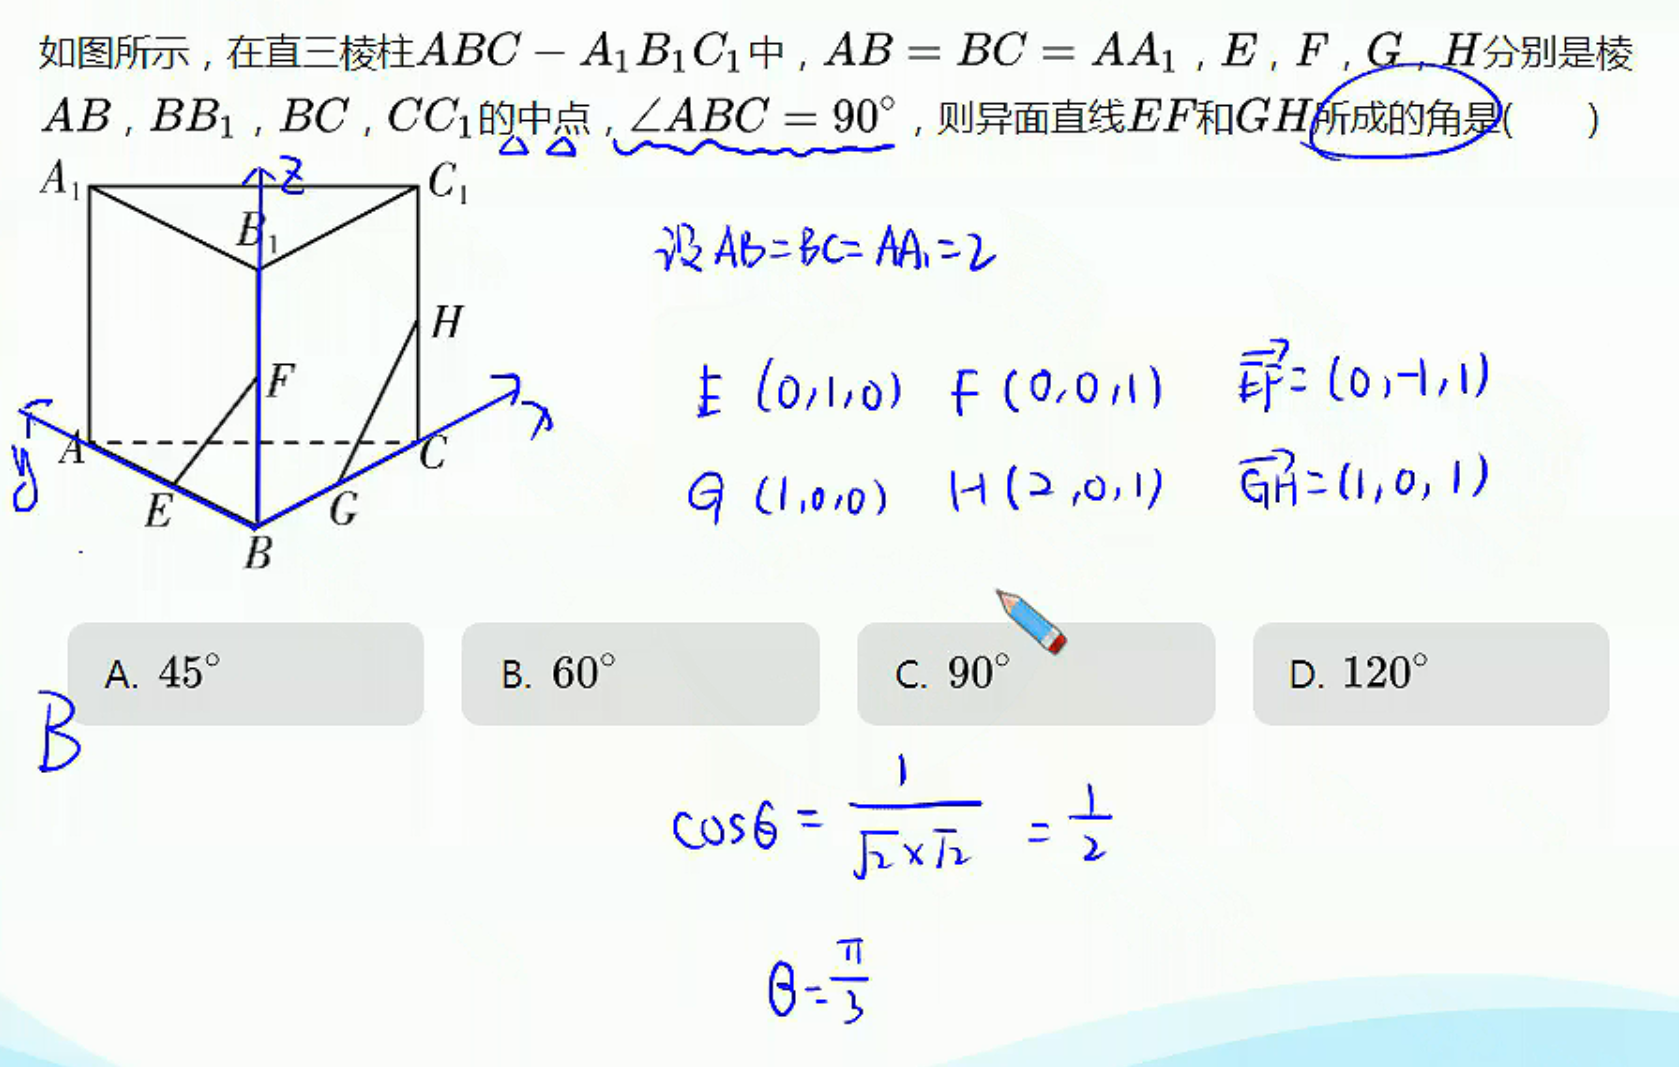 如图所示，在直三棱柱ABC − A₁B₁C₁中，AB = BC = AA₁，E，F，G，H分别是棱
AB，BB₁，BC，CC₁的中点，∠ABC = 90°，则异面直线EF和GH所成的角是(　　)
A₁
z
C₁
B₁
设 AB=BC=AA₁=2
H
F
E (0,1,0) F (0,0,1) EF⃗=(0,-1,1)
x
y
A
C
E
G
B
G (1,0,0) H (2,0,1) GH⃗=(1,0,1)
A. 45°
B. 60°
C. 90°
D. 120°
B
cosθ = 1/(√2×√2) = 1/2
θ=π/3